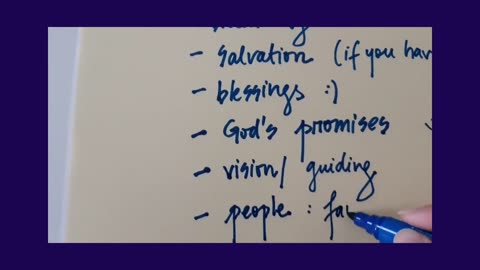 - salvation (if you hav
- blessings :)
- God's promises
- vision/ guiding
- people : fa